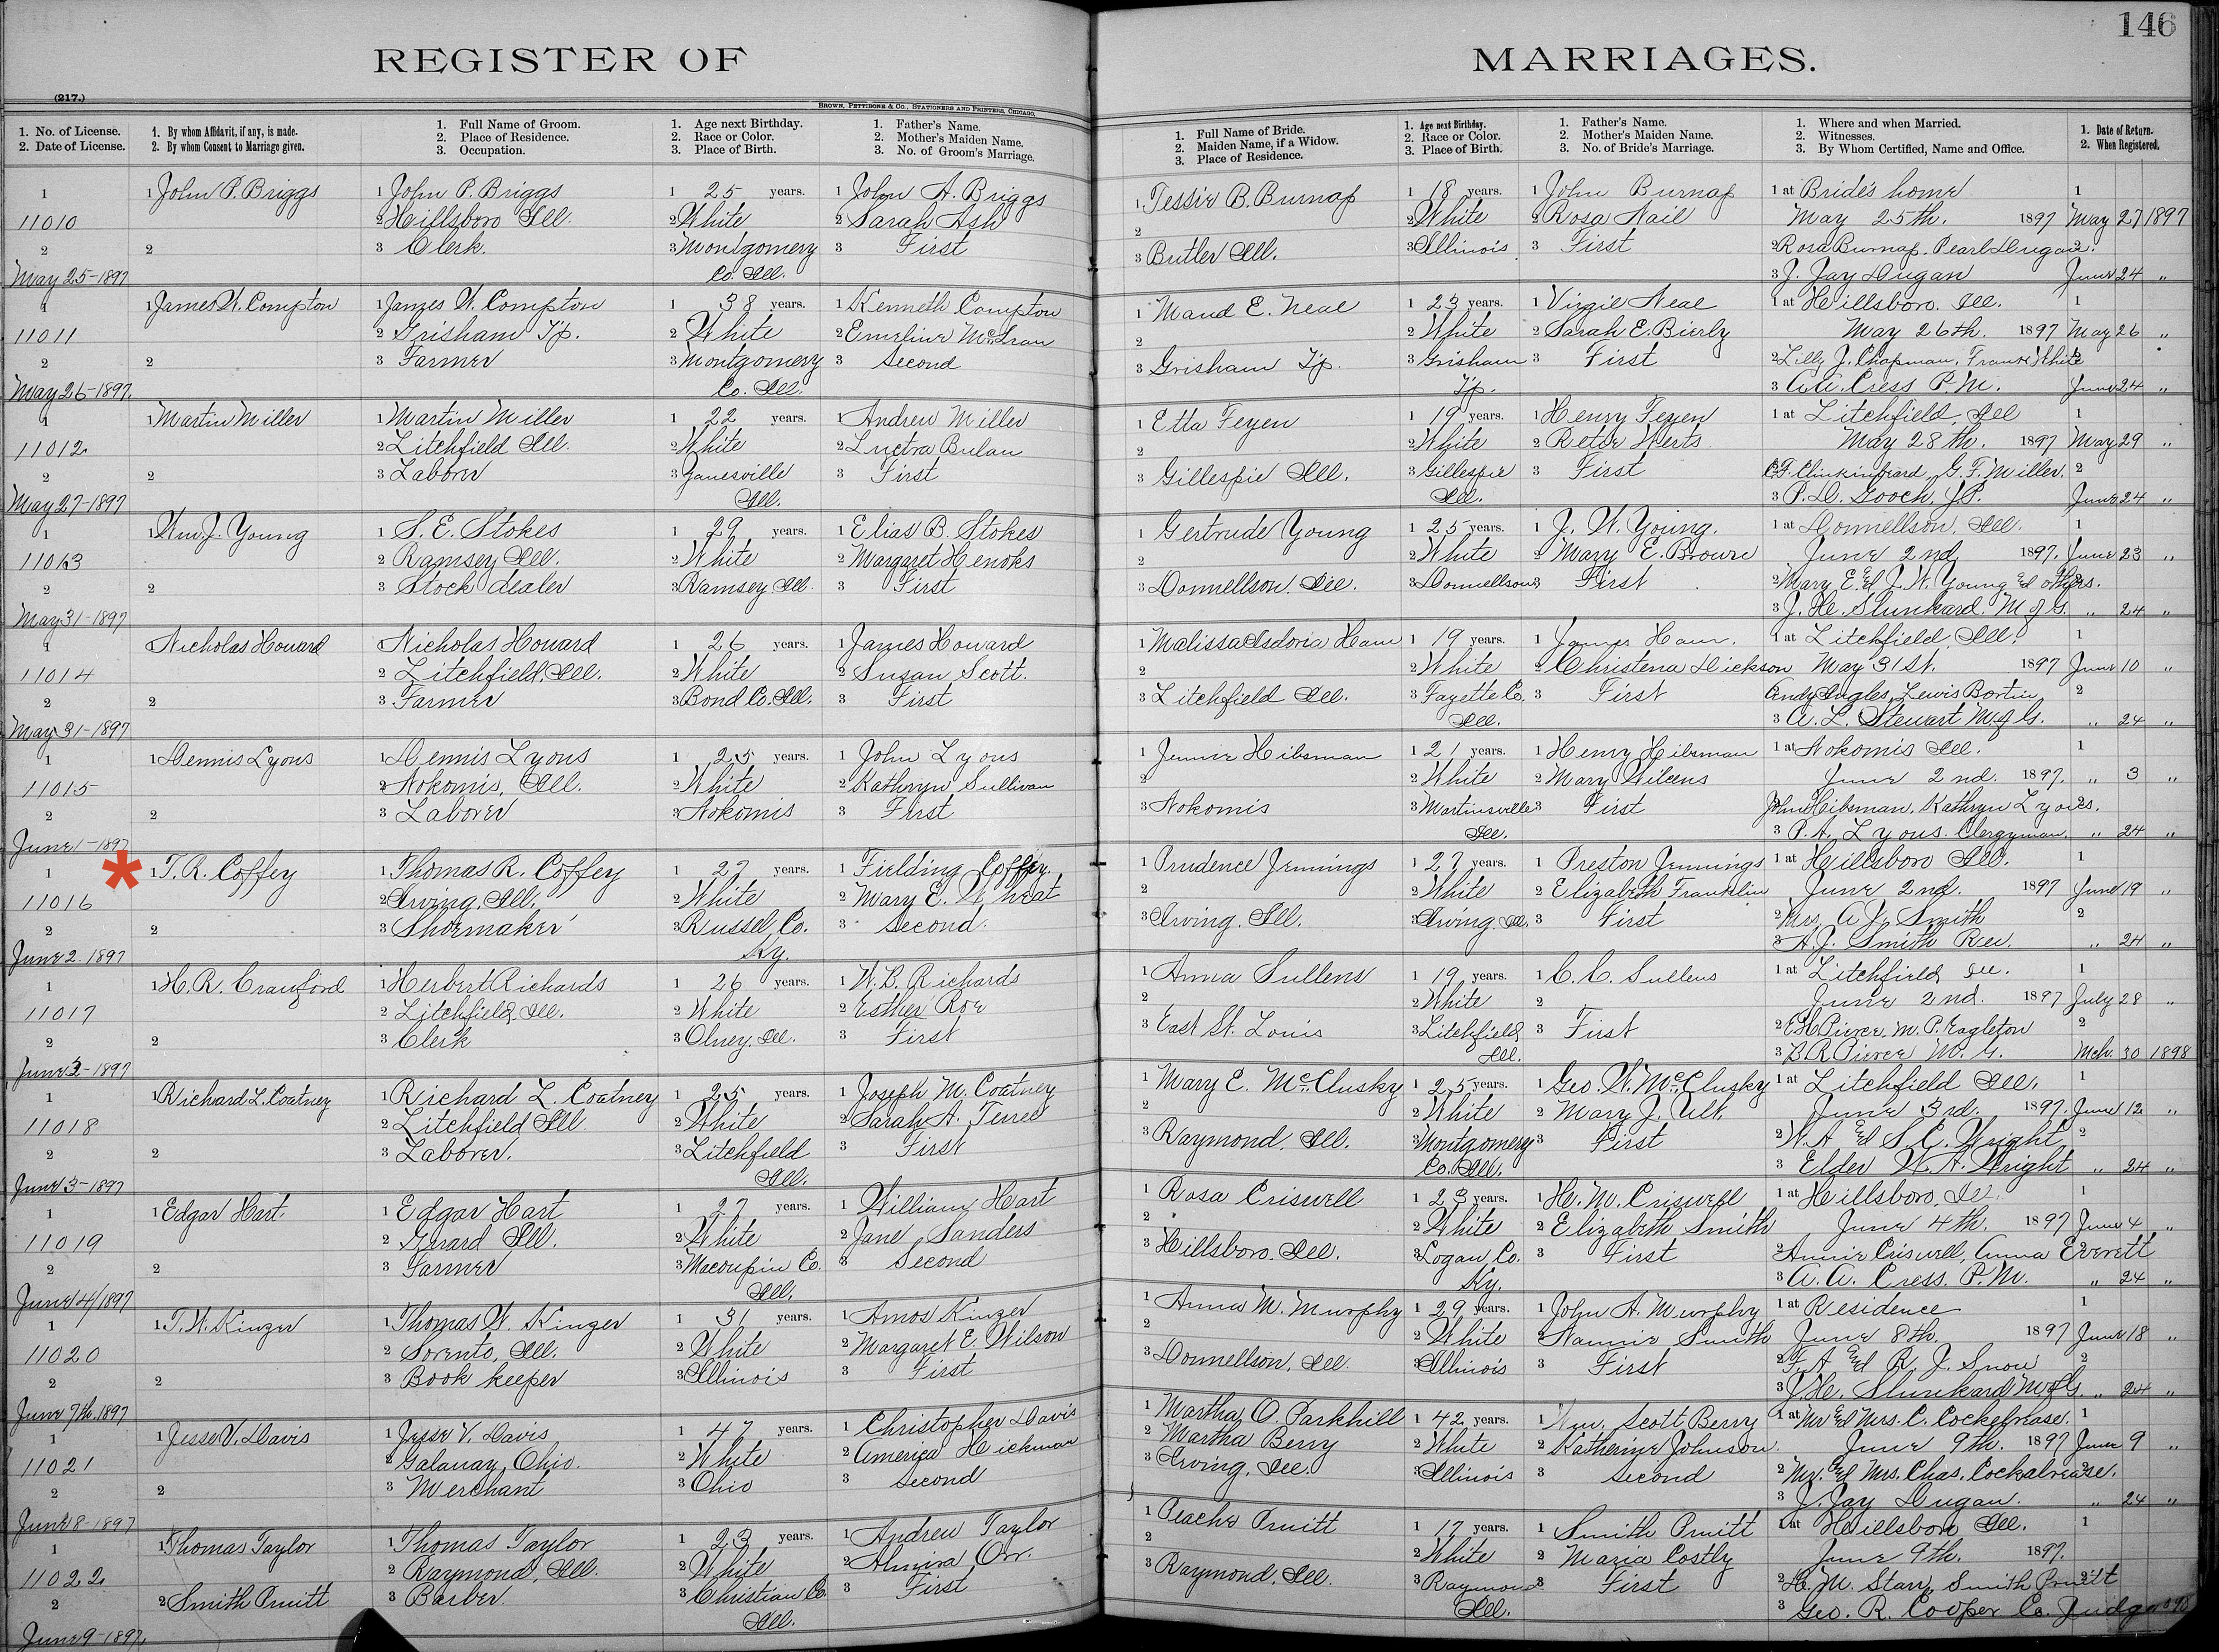 146
REGISTER OF MARRIAGES.
(217.)
BROWN, PETTIBONE & CO., STATIONERS AND PRINTERS, CHICAGO.
1. No. of License.
2. Date of License.
1. By whom Affidavit, if any, is made.
2. By whom Consent to Marriage given.
1. Full Name of Groom.
2. Place of Residence.
3. Occupation.
1. Age next Birthday.
2. Race or Color.
3. Place of Birth.
1. Father's Name.
2. Mother's Maiden Name.
3. No. of Groom's Marriage.
1. Full Name of Bride.
2. Maiden Name, if a Widow.
3. Place of Residence.
1. Age next Birthday.
2. Race or Color.
3. Place of Birth.
1. Father's Name.
2. Mother's Maiden Name.
3. No. of Bride's Marriage.
1. Where and when Married.
2. Witnesses.
3. By Whom Certified, Name and Office.
1. Date of Return.
2. When Registered.
1 1 John P. Briggs 1 John P. Briggs 1 25 years. 1 John A. Briggs 1 Tessie B. Burnap 1 18 years. 1 John Burnap 1 at Bride's home 1
11010 2 Hillsboro Ill. 2 White 2 Sarah Ash 2 2 White 2 Rosa Nail May 25th. 1897 May 27 1897
2 2 3 Clerk. 3 Montgomery 3 First 3 Butler Ill. 3 Illinois 3 First 2 Rosa Burnap, Pearl Dugan. 2
May 25-1897 Co. Ill. 3 J. Jay Dugan June 24 "
1 1 James W. Compton 1 James W. Compton 1 38 years. 1 Kenneth Compton 1 Maud E. Neal 1 23 years. 1 Virgil Neal 1 at Hillsboro. Ill. 1
11011 2 Grisham Tp. 2 White 2 Emeline 2 2 White 2 Sarah E. Bierly May 26th. 1897 May 26 "
2 2 3 Farmer 3 Montgomery 3 Second 3 Grisham Tp. 3 Grisham 3 First 2 Lilly J. Chapman, White 2
May 26-1897. Co. Ill. Tp. 3 A.A. Cress P.M. June 24 "
1 1 Martin Miller 1 Martin Miller 1 22 years. 1 Andrew Miller 1 Etta Feyen 1 19 years. 1 Henry Feyen 1 at Litchfield, Ill 1
11012 2 Litchfield Ill. 2 White 2 2 2 White 2 May 28th. 1897 May 29 "
2 2 3 Laborer 3 Zanesville 3 First 3 Gillespie Ill. 3 Gillespie 3 First G. F. Miller. 2
May 27-1897 Ill. Ill. 3 P. D. Gooch, J.P. June 24 "
1 1 Wm. J. Young 1 S. E. Stokes 1 29 years. 1 Elias B. Stokes 1 Gertrude Young 1 25 years. 1 J. W. Young. 1 at Donnellson, Ill. 1
11013 2 Ramsey Ill. 2 White 2 Margaret 2 2 White 2 Mary E. Brown June 2nd 1897. June 23 "
2 2 3 Stock dealer 3 Ramsey Ill. 3 First 3 Donnellson, Ill. 3 Donnellson 3 First 2 Mary E. and J. W. Young and others.
May 31-1897 3 M of G. " 24 "
1 Nicholas Howard Nicholas Howard 1 26 years. 1 James Howard 1 Malissa Isdoria Ham 1 19 years. 1 James Ham. 1 at Litchfield, Ill. 1
11014 2 Litchfield, Ill. 2 White 2 Susan Scott. 2 2 White 2 Christena Dickson May 31st. 1897 June 10 "
2 2 3 Farmer 3 Bond Co. Ill. 3 First 3 Litchfield Ill. 3 Fayette Co. 3 First Andy Engles, Lewis Bortin 2
May 31-1897 Ill. 3 A. L. Stewart M.of G. " 24 "
1 1 Dennis Lyons 1 Dennis Lyons 1 25 years. 1 John Lyons 1 Jennie Hibsman 1 21 years. 1 Henry Hibsman 1 at Nokomis Ill. 1
11015 2 Nokomis, Ill. 2 White 2 Kathryn Sullivan 2 2 White 2 Mary June 2nd. 1897. " 3 "
2 2 3 Laborer 3 Nokomis 3 First 3 Nokomis 3 Martinsville 3 First John Hibsman, Kathryn Lyons. 2
June 1-1897 Ill. 3 P. A. Lyons. Clergyman " 24 "
* 1 1 T. R. Coffey 1 Thomas R. Coffey 1 27 years. 1 Fielding Coffey. 1 Prudence Jennings 1 27 years. 1 Preston Jennings 1 at Hillsboro Ill. 1
11016 2 Irving, Ill. 2 White 2 Mary E. Wheat 2 2 White 2 Elizabeth Franklin June 2nd. 1897 June 19 "
2 2 3 Shoemaker 3 Russel Co. 3 Second. 3 Irving. Ill. 3 Irving. Ill. 3 First 2 Mrs. A. J. Smith 2
June 2 1897 Ky. 3 A. J. Smith Rev. " 24 "
1 1 H. R. Crawford 1 Herbert Richards 1 26 years. 1 W. B. Richards 1 Anna Sullens 1 19 years. 1 C. C. Sullens 1 at Litchfield, Ill. 1
11017 2 Litchfield, Ill. 2 White 2 Esther Roe 2 2 White 2 June 2nd. 1897 July 28 "
2 2 3 Clerk 3 Olney, Ill. 3 First 3 East St. Louis 3 Litchfield, 3 First 2 E.H. Pierce. M. P. Eagleton 2
June 3-1897 Ill. 3 B R Pierce M. G. Mch. 30 1898
1 1 Richard L. Coatney 1 Richard L. Coatney 1 25 years. 1 Joseph M. Coatney 1 Mary E. McClusky 1 25 years. 1 Geo. W. McClusky 1 at Litchfield Ill. 1
11018 2 Litchfield Ill 2 White 2 Sarah A. 2 2 White 2 Mary J. Ult. June 3rd. 1897. June 12 "
2 2 3 Laborer. 3 Litchfield 3 First 3 Raymond, Ill. 3 Montgomery 3 First 2 W. A and S. C. Wright 2
June 3-1897 Ill. Co. Ill. 3 Elder W. A. Wright " 24 "
1 1 Edgar Hart 1 Edgar Hart 1 27 years. 1 William Hart 1 Rosa Criswell 1 23 years. 1 H. M. Criswell 1 at Hillsboro, Ill. 1
11019 2 Girard Ill. 2 White 2 Jane Sanders 2 2 White 2 Elizabeth Smith June 4th. 1897 June 4 "
2 2 3 Farmer 3 Macoupin Co. 3 Second 3 Hillsboro. Ill. 3 Logan, Co. 3 First 2 Annie Criswell, Anna Everett
June 4/1897 Ill. Ky. 3 A. A. Cress. P.M. " 24 "
1 1 T. W. Kinzer 1 Thomas W. Kinzer 1 31 years. 1 Amos Kinzer 1 Anna M. Murphy 1 29 years. 1 John A. Murphy 1 at Residence 1
11020 2 Sorento, Ill. 2 White 2 Margaret E. Wilson 2 2 White 2 Nannie Smith June 8th. 1897 June 18 "
2 2 3 Book keeper 3 Illinois 3 First 3 Donnellson, Ill. 3 Illinois 3 First 2 F. A and R. J. Snow 2
June 7th 1897 3 M of G. " 24 "
1 1 Jesse V. Davis 1 Jesse V. Davis 1 47 years. 1 Christopher Davis 1 Martha O. Parkhill 1 42 years. 1 Wm. Scott Berry 1 at Mr and Mrs. C. 1
11021 2 Ohio. 2 White 2 America Hickman 2 Martha Berry 2 White 2 Katherine Johnson. June 9th. 1897 June 9 "
2 2 3 Merchant 3 Ohio 3 Second 3 Irving, Ill. 3 Illinois 3 Second 2 Mr. and Mrs. Chas. 2
June 8-1897 3 J. Jay Dugan. " 24 "
1 1 Thomas Taylor 1 Thomas Taylor 1 23 years. 1 Andrew Taylor 1 Peache Pruitt 1 17 years. 1 Smith Pruitt 1 at Hillsboro, Ill. 1
11022 2 Raymond, Ill. 2 White 2 Almira Orr. 2 2 White 2 Maria Costly June 9th. 1897.
2 2 Smith Pruitt 3 Barber 3 Christian Co. 3 First 3 Raymond, Ill. 3 Raymond 3 First 2 H. M. Starr, Smith Pruitt 2
June 9-1897. Ill. Ill. 3 Geo. R. Cooper Co. Judge